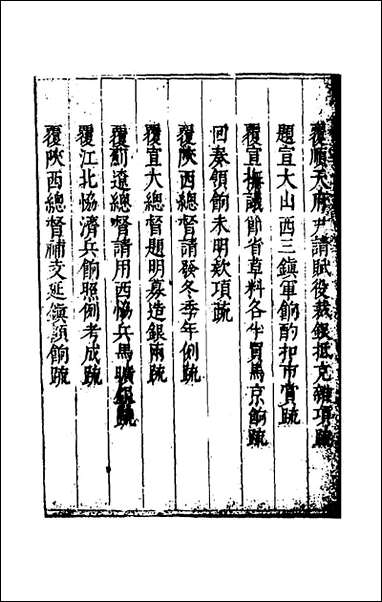 覆順天府尹請賦役裁銀抵充雜項疏
題宣大山西三鎮軍餉酌扣市賞疏
覆宣撫議節省草料各半買馬京餉疏
回奏領餉未明欵項疏
覆陝西總督請發冬季年例疏
覆宣大總督題明募造銀兩疏
覆薊遼總督請用西協兵馬曠銀疏
覆江北恊濟兵餉照例考成疏
覆陝西總督補支延鎮額餉疏